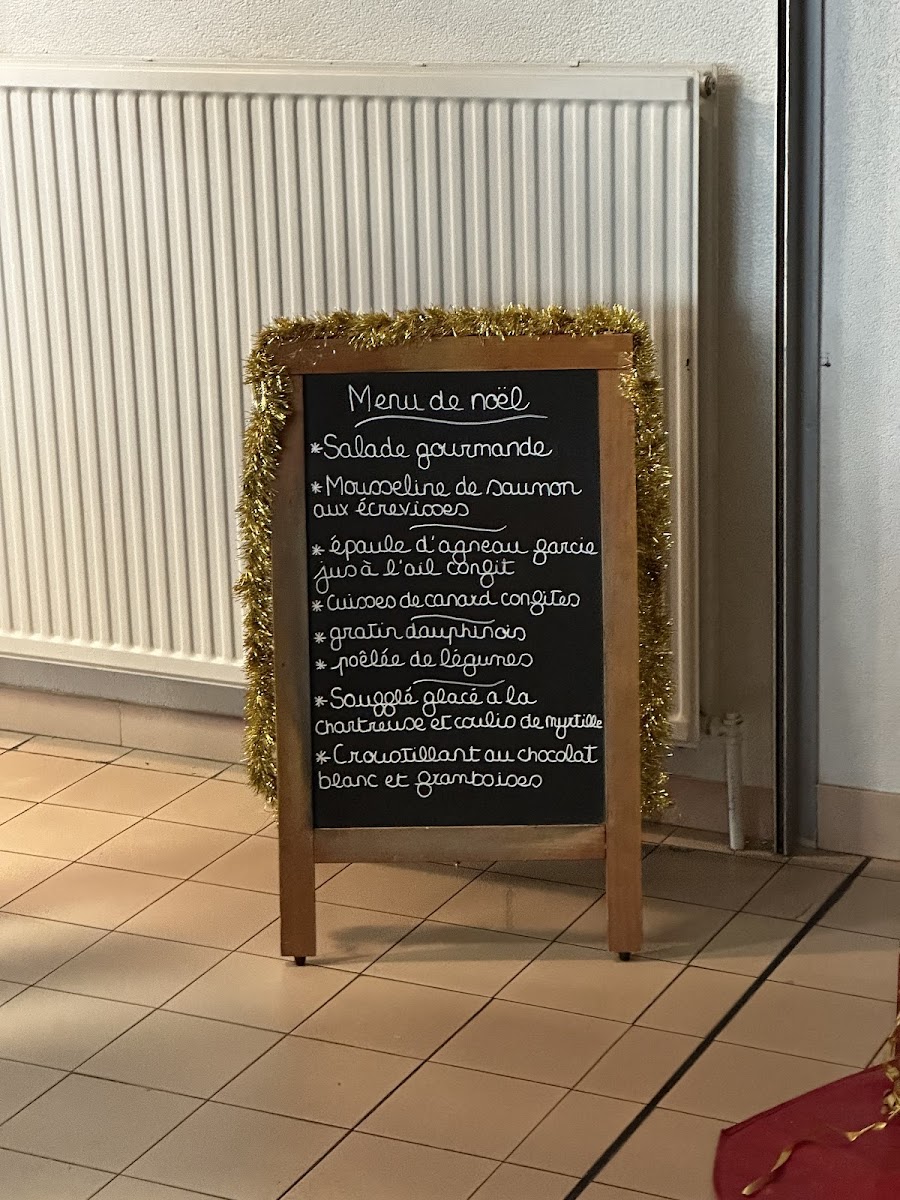 Menu de noël
*Salade gourmande
*Mousseline de saumon
aux écrevisses
* épaule d'agneau farcie
jus à l'ail confit
* cuisses de canard confites
* gratin dauphinois
* poêlée de légumes
*Soufflé glacé a la
chartreuse et coulis de myrtille
*Croustillant au chocolat
blanc et framboises